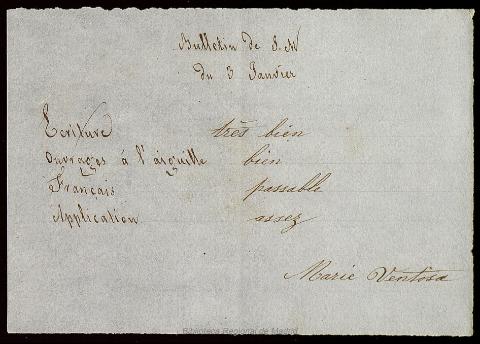 Bulletin de S. M
du 3 Janvier
Ecriture très bien
Ouvrages à l'aiguille bien
Français passable
Application assez
Marie Ventosa
Biblioteca Regional de Madrid